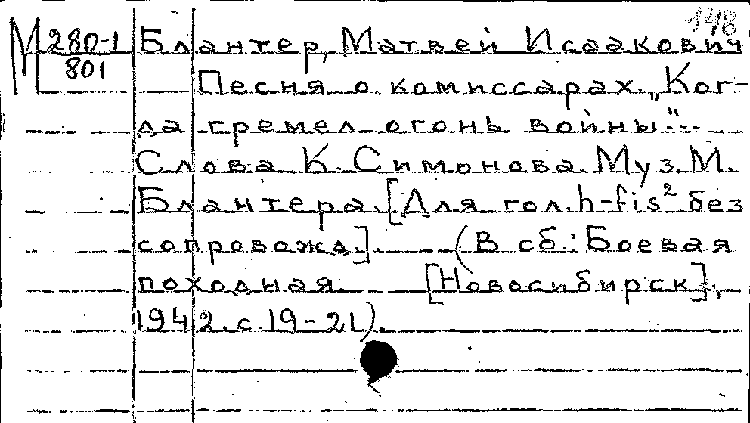 148
М 280-1 Блантер, Матвей Исаакович
801
Песня о комиссарах „Ког-
да гремел огонь войны“.
Слова К. Симонова. Муз. М.
Блантера. [Для гол. h-fis² без
сопровожд]. (В сб.: Боевая
походная. [Новосибирск],
1942. с. 19-21).